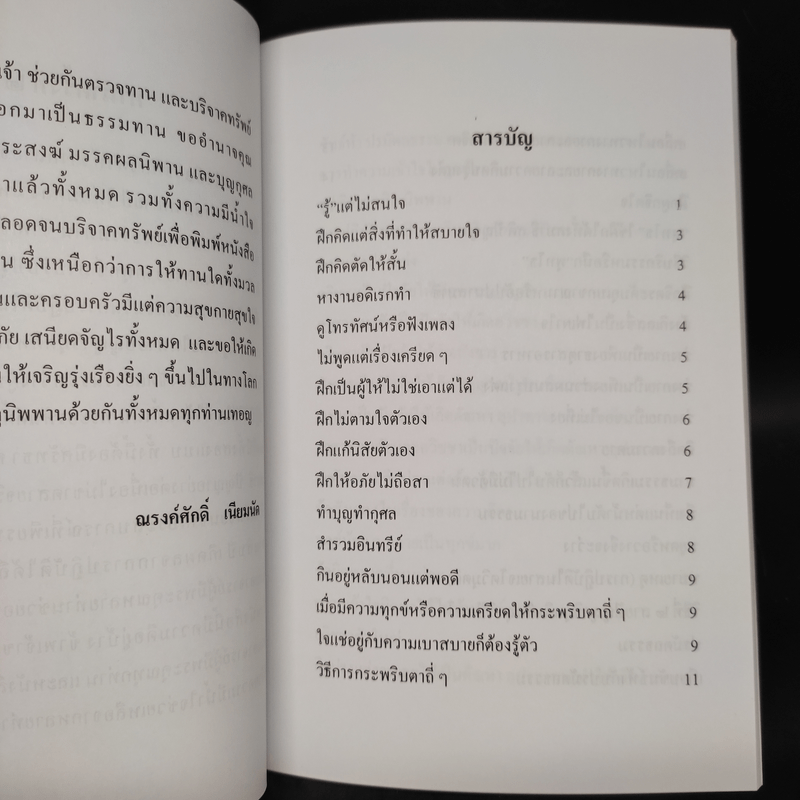 เจ้า ช่วยกันตรวจทาน และบริจาคทรัพย์
อกมาเป็นธรรมทาน ขออำนาจคุณ
ระสงฆ์ มรรคผลนิพาน และบุญกุศล
าแล้วทั้งหมด รวมทั้งความมีน้ำใจ
ลอดจนบริจาคทรัพย์เพื่อพิมพ์หนังสือ
น ซึ่งเหนือกว่าการให้ทานใดทั้งมวล
นและครอบครัวมีแต่ความสุขกายสุขใจ
ภัย เสนียดจัญไรทั้งหมด และขอให้เกิด
ให้เจริญรุ่งเรืองยิ่ง ๆ ขึ้นไปในทางโลก
นิพพานด้วยกันทั้งหมดทุกท่านเทอญ
ณรงค์ศักดิ์ เนียมนัด
สารบัญ
“รู้”แต่ไม่สนใจ 1
ฝึกคิดแต่สิ่งที่ทำให้สบายใจ 3
ฝึกคิดตัดให้สั้น 3
หางานอดิเรกทำ 4
ดูโทรทัศน์หรือฟังเพลง 4
ไม่พูดแต่เรื่องเครียด ๆ 5
ฝึกเป็นผู้ให้ไม่ใช่เอาแต่ได้ 5
ฝึกไม่ตามใจตัวเอง 6
ฝึกแก้นิสัยตัวเอง 6
ฝึกให้อภัยไม่ถือสา 7
ทำบุญทำกุศล 8
สำรวมอินทรีย์ 8
กินอยู่หลับนอนแต่พอดี 9
เมื่อมีความทุกข์หรือความเครียดให้กระพริบตาถี่ ๆ 9
ใจแช่อยู่กับความเบาสบายก็ต้องรู้ตัว 9
วิธีการกระพริบตาถี่ ๆ 11